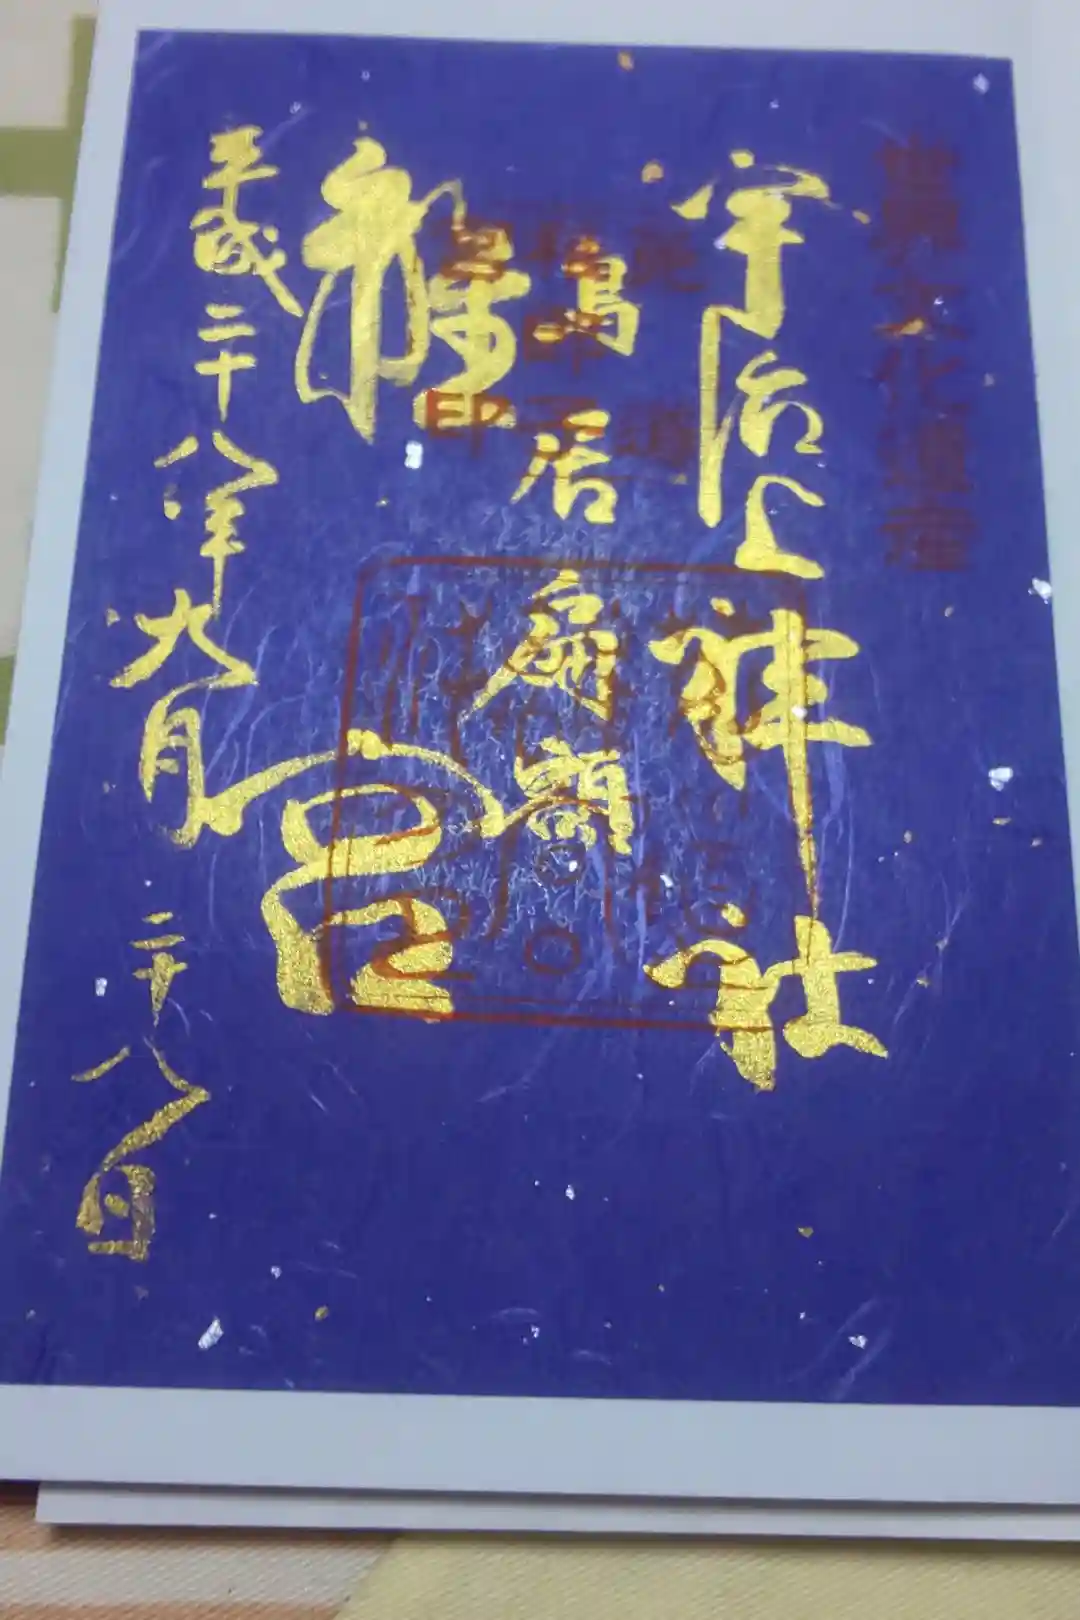 世界文化遺産
宇治上神社
鳥居扁額
離宮
平成二十八年九月二十八日